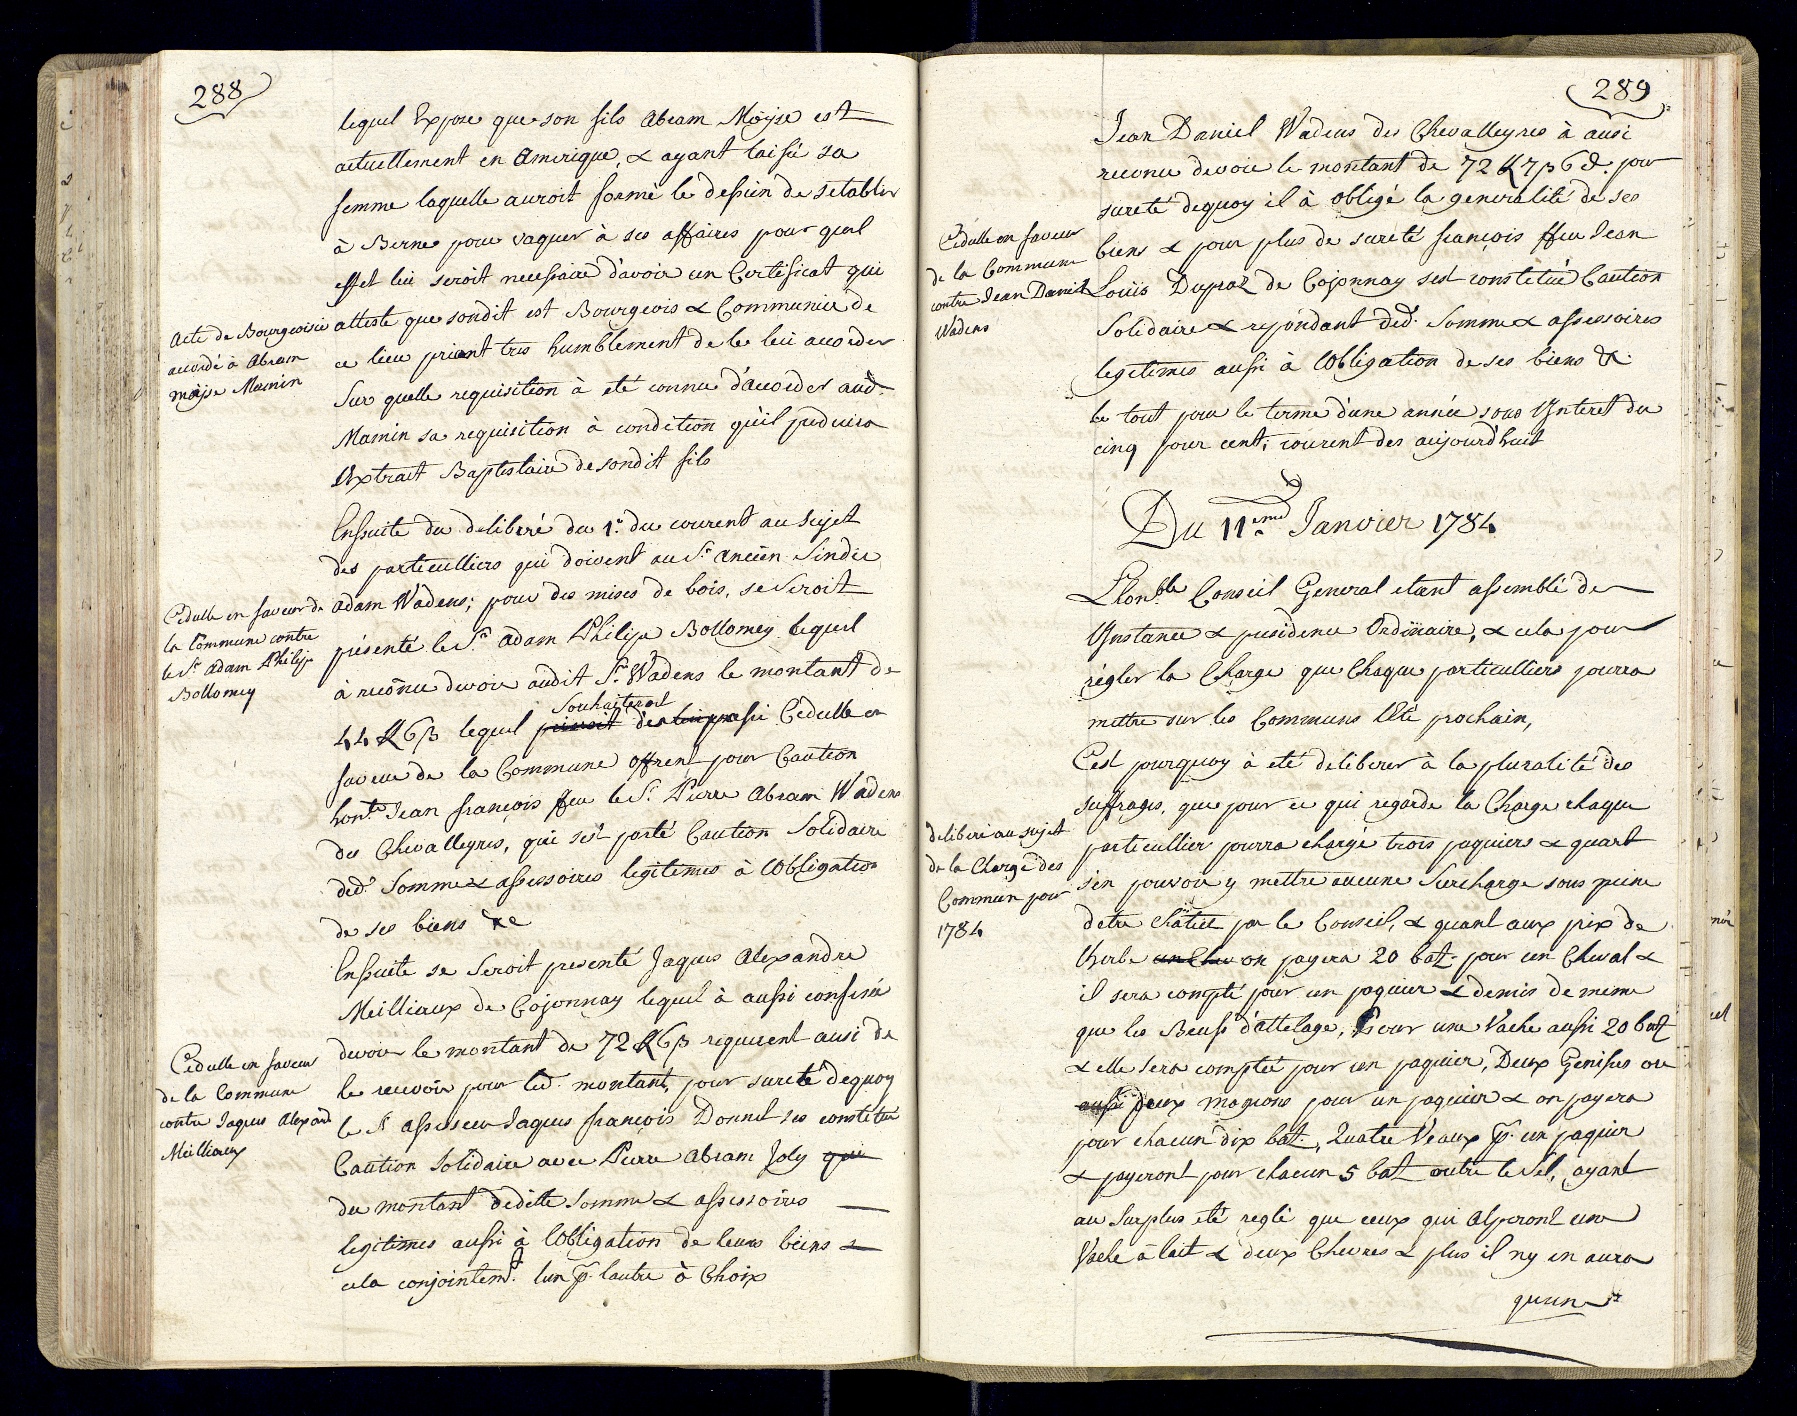 288
lequel Expose que son fils Abram Moÿse est
actuellement en Amerique, & ayant laissé sa
femme laquelle auroit formé le dessein de setablir
à Berne pour vaquer à ses affaires pour quel
effet lui seroit necessaire d'avoir un Certificat qui
atteste que sondit est Bourgeois & Communier de
ce lieu priant tres humblement de le lui accorder
Sur quelle requisition à eté connu d'accorder aud.
Mamin sa requisition à condition qu'il produira
Extrait Baptistaire de sondit fils
Acte de Bourgeoisie
accordé à Abram
moÿse Mamin
Ensuite du deliberé du 1.er du courent au sujet
des particulliers qui doivent au S.r Ancien Sindic
Adam Wadens; pour des mises de bois, se Seroit
présenté le S.r Adam Philipe Bollomey lequel
à reconnu devoir audit S.r Wadens le montant de
Souhaiteroit
44 L 6 ß lequel priroit d'en lui passé Cedulle en
faveur de la Commune offrent pour Caution
hon.te Jean françois ffeu le S.r Pierre Abram Wadens
des Chevalleyres, qui s'est porté Caution Solidaire
ded.e Somme & assessoires legitimes à l'Obligation
de ses biens &c
Cedulle en faveur de
la Commune contre
le S.r Adam Philipe
Bollomey
Ensuite se Seroit presenté Jaques Alexandre
Meilliaux de Cojonnay lequel à aussi confessé
devoir le montant de 72 L 6 ß requerent ausi de
le recevoir pour led. montant, pour sureté dequoy
le S.r Assesseur Jaques françois Dormel ses constitué
Caution Solidaire avec Pierre Abram Joly qui
du montant deditte Somme & assessoires
legitimes aussi à l'Obligation de leurs biens &
cela conjointem.t lun p.r lautre à Choix
Cedulle en faveur
de la Commune
contre Jaques Alexand
Meilliaux
289
Jean Daniel Wadens des Chevalleyres à ausi
reconnu devoir le montant de 72 L 7 ß 6 d. pour
sureté dequoy il à obligé la generalité de ses
biens & pour plus de sureté françois ffeu Jean
Louïs Dupraz de Cojonnay sest constitué Caution
Solidaire & repondant ded. Somme & assessoires
legitimes aussi à l'Obligation de ses biens &c.
Le tout pour le terme d'une année sous Ynteret du
cinq pour cent, courent des aujourd'huit
Cedulle en faveur
de la Commune
contre Jean Daniel
Wadens
Du 11.eme Janvier 1784
L'hon.ble Conseil General etant assemblé de
Ynstance & presidence Ordinaire, & cela pour
régler la Charge que Chaque particulliers pourra
mettre sur les Communs l'Eté prochain,
C'est pourquoy à eté deliberer à la pluralité des
suffrages, que pour ce qui regarde la Charge chaque
particullier pourra chargé trois paquiers & quart
s'en pouvoir y mettre aucune Surcharge sous peine
detre châtiée par le Conseil, & quant aux prix de
l'herbe un Chev on payera 20 batz. pour un Cheval &
il sera compté pour un paquier & demis de meme
que les Beufs d'attelage, Pour une Vache aussi 20 batz
& elle sera comptée pour un paquier, Deux Genisses ou
aussi deux mogeons pour un paquier & on payera
pour chacun dix bat., Quatre Veaux p.r un paquier
& payeront pour chacun 5 bat outre le Sel, ayant
au surplus été reglé que ceux qui Alperont une
Vache à lait & deux Chevres & plus il ny en aura
qu'une
deliberé au sujet
de la Charge des
Commun pour
1784